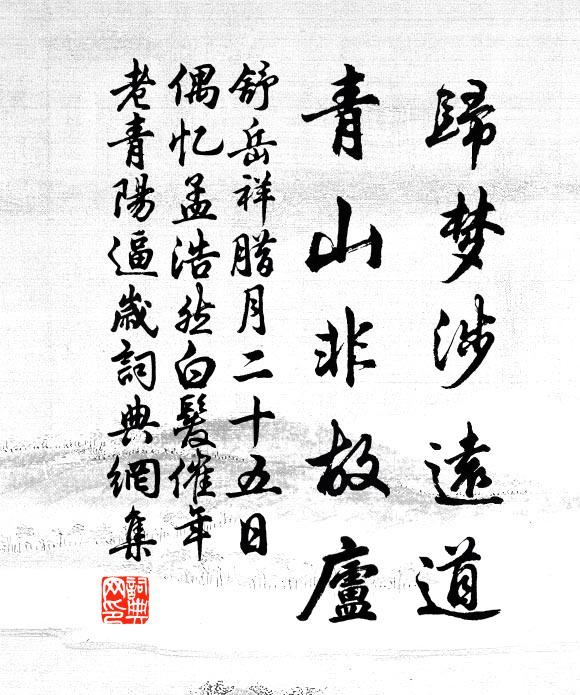 歸梦涉遠道
青山非故廬
舒岳祥腊月二十五日
偶忆孟浩然白髮催年
老青陽逼歲詞典網集
詞典网印